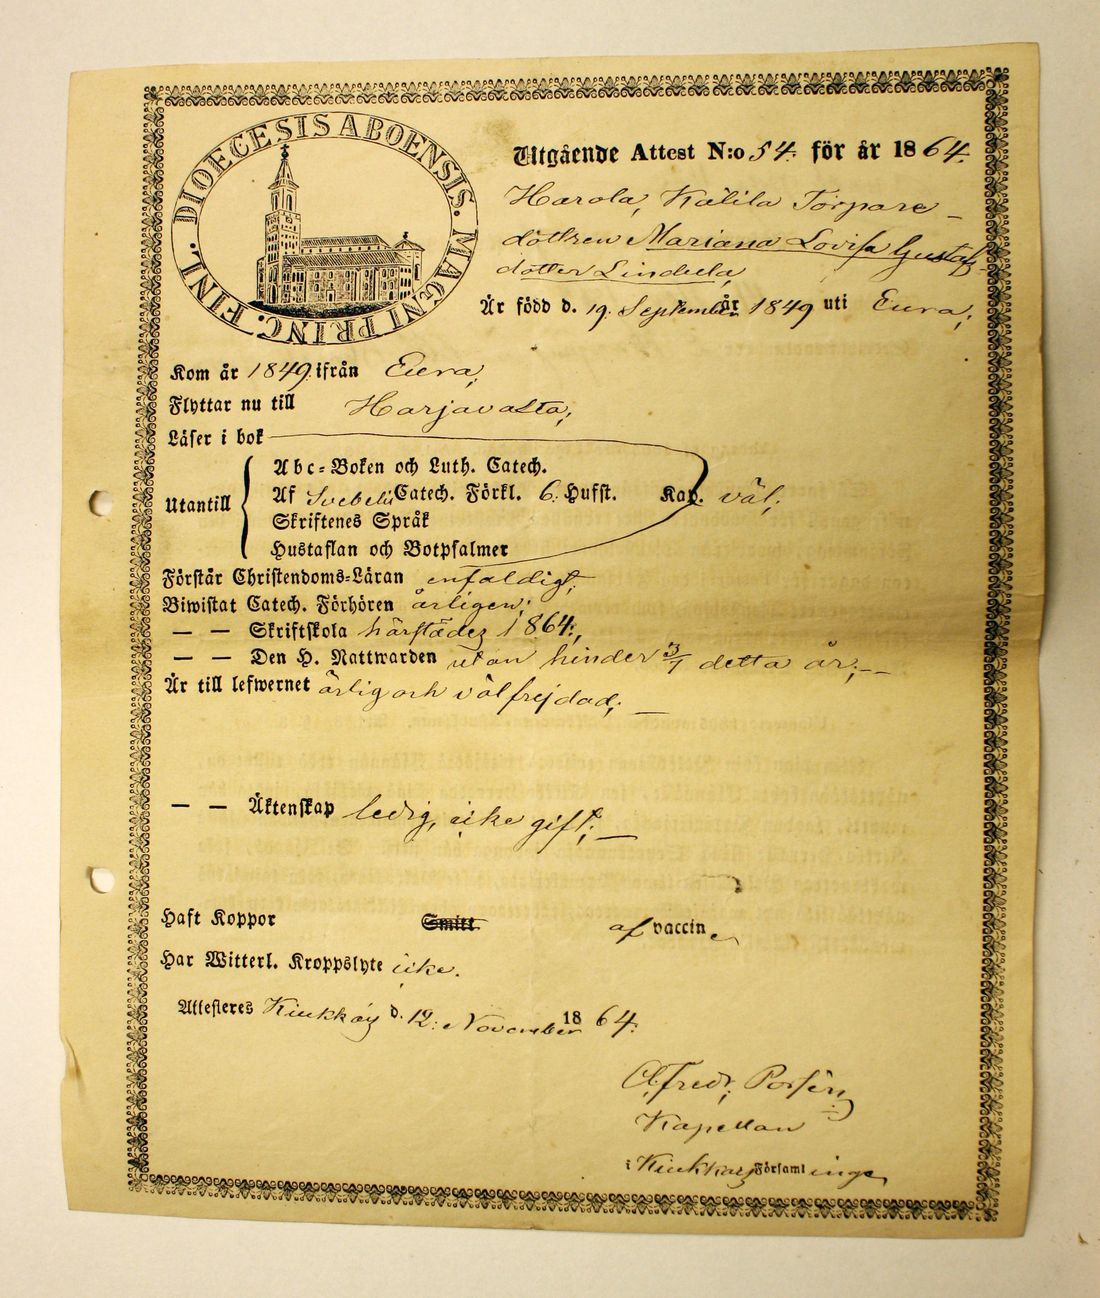 DIOECESIS ABOENSIS. MAGNI PRINC. FINL.
Utgående Attest N:o 54. för år 1864.
Harola, Kälilä Torpare-
dottren Mariana Lovisa Gustaf-
dotter Lindula,
Är född d. 19. September år 1849 uti Eura;
Kom år 1849. ifrån Eura;
Flyttar nu till Harjavalta;
Läser i bok
Utantill
Abc-Boken och Luth. Catech.
Af Svebelii Catech. Förkl. 6: Hufst. Kap. väl;
Skriftenes Språk
Hustaflan och Botpsalmer
Förstår Christendoms-Läran enfaldigt,
Biwistat Catech. Förhören årligen;
— — Skriftskola härstädes 1864;
— — Den H. Nattwarden utan hinder 3/7 detta år; —
Är till lefwernet ärlig och välfrejdad; —
— — Äktenskap ledig, icke gift; —
Haft Koppor Smitt. af vaccin
Har Witterl. Kroppslyte icke.
Attesteres Kiukkais d. 12: November 1864.
A. Fredr. Porsén
Kapellan
i Kiukkais Församlinge